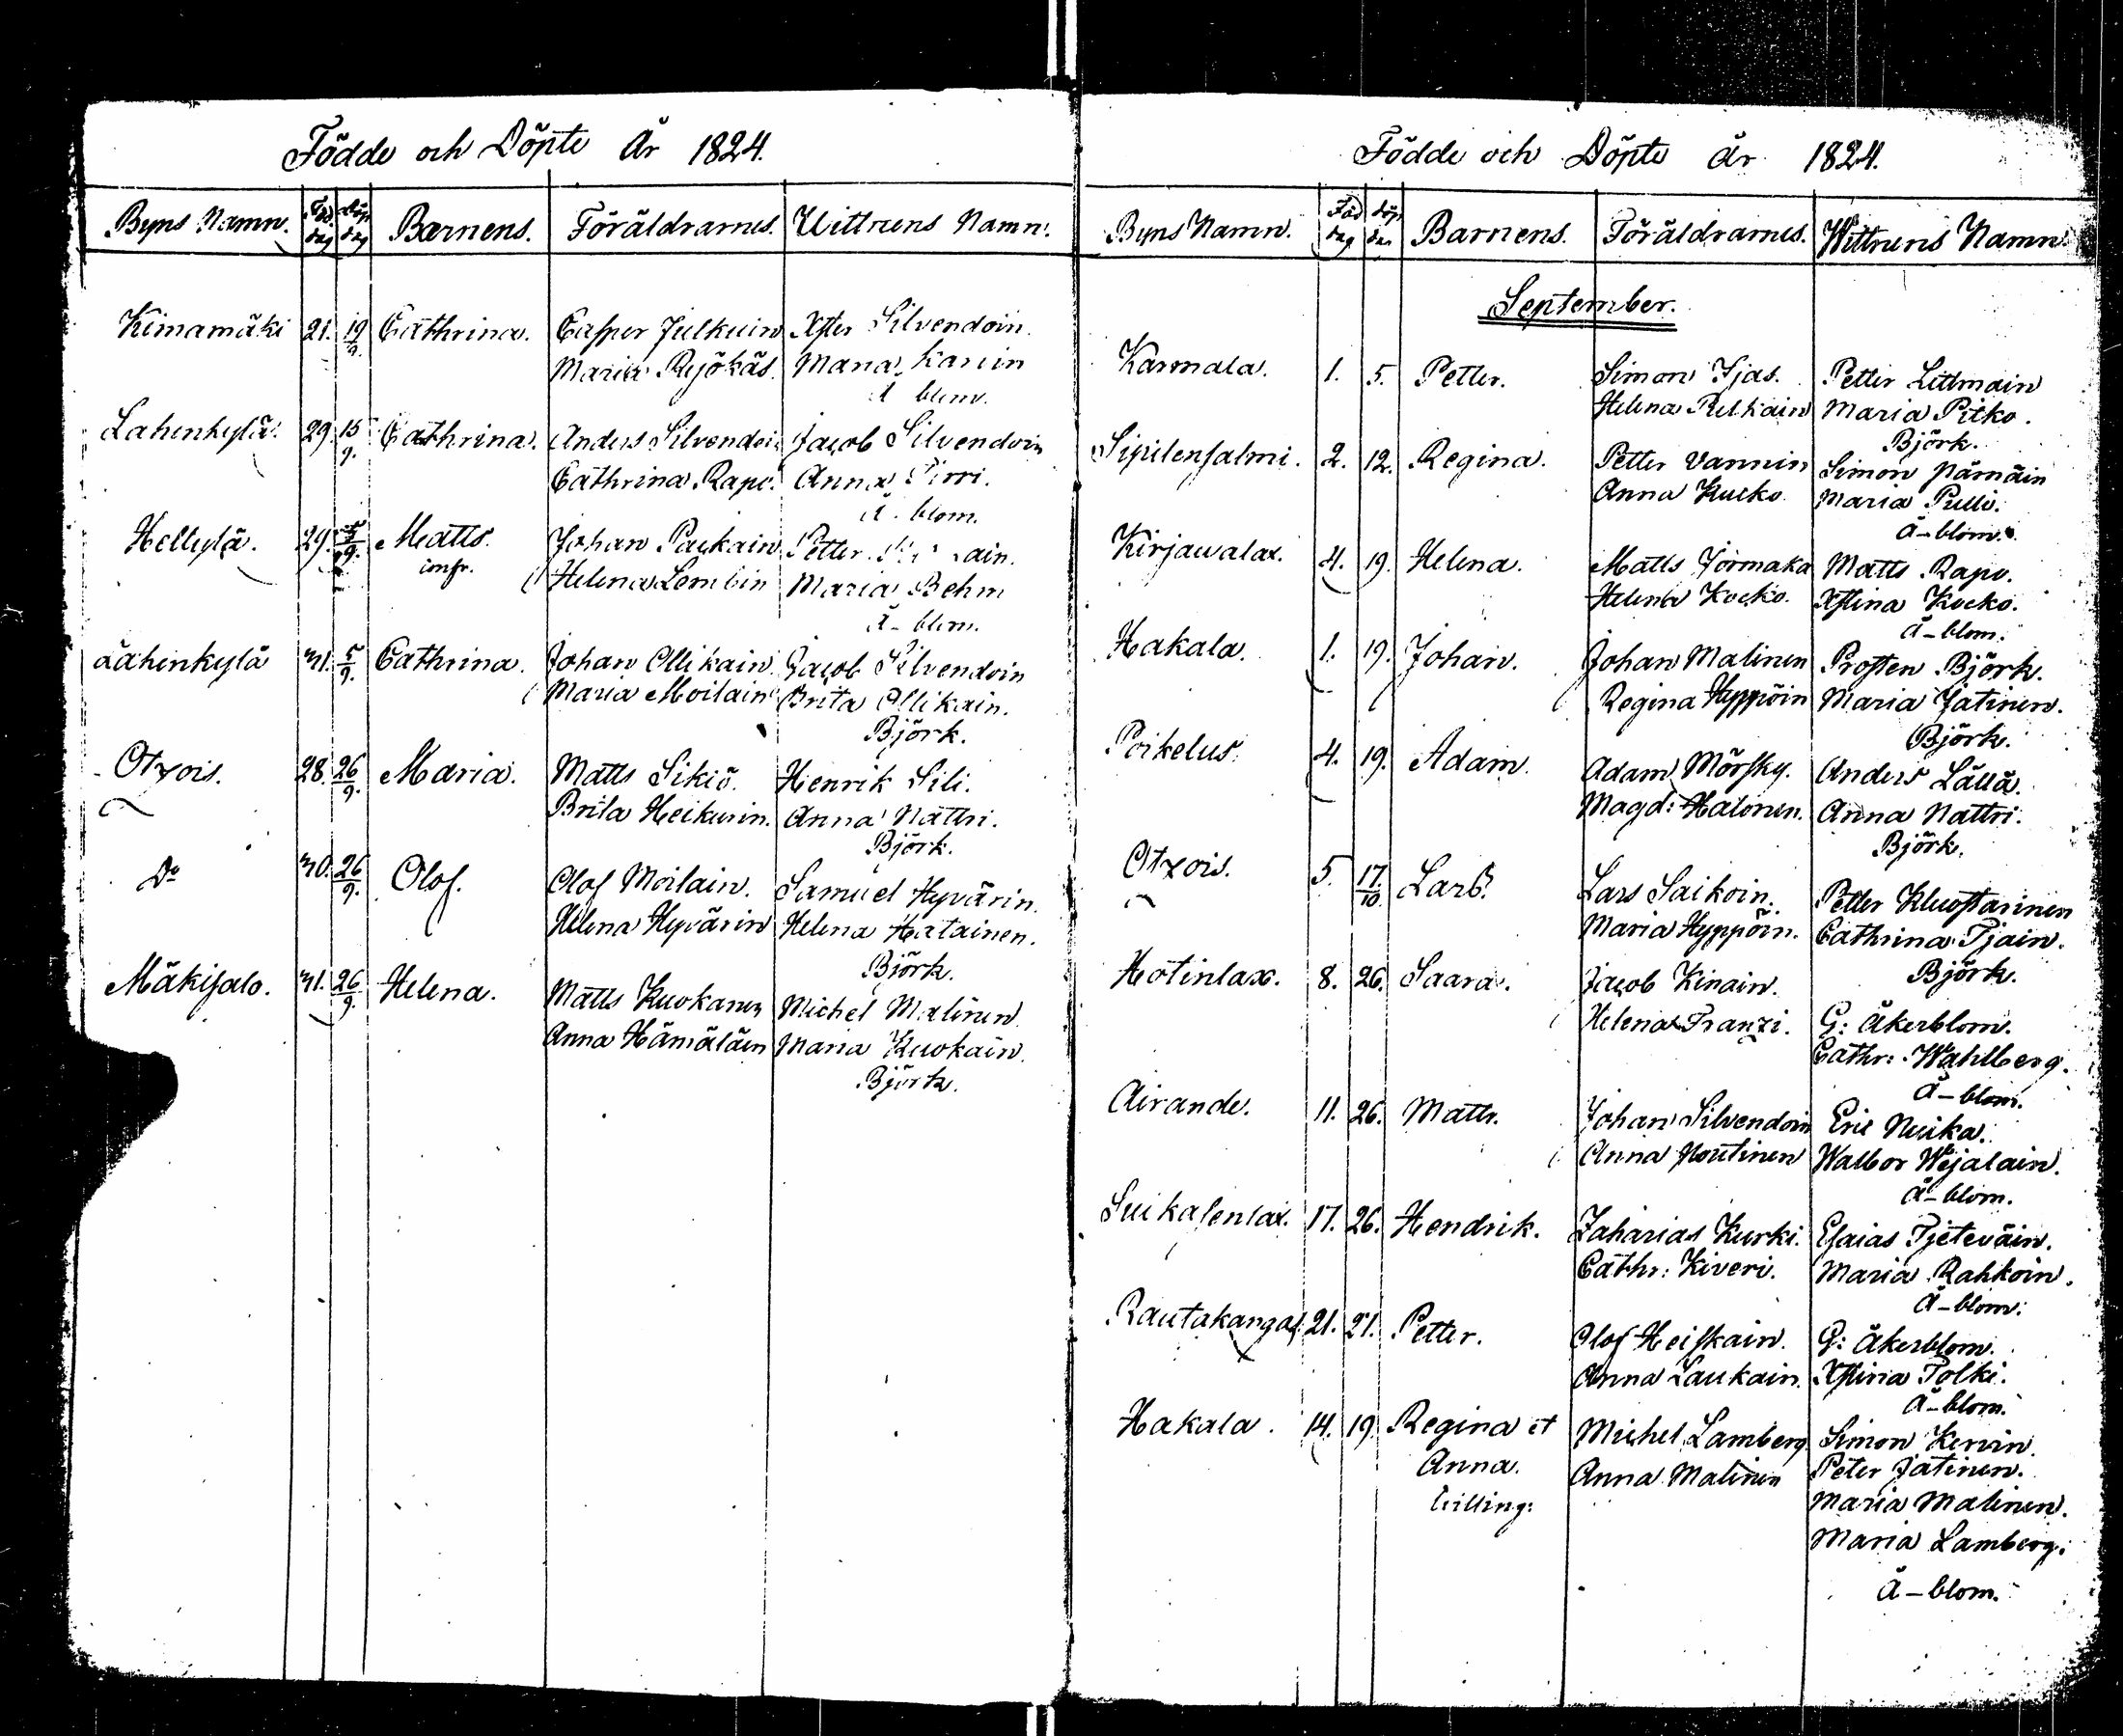 Födde och Döpte År 1824.
Byns Namn. Föd dag Döp dag Barnens. Föräldrarnes. Wittnens Namn.
Kimamäki 21. 19/9. Cathrina. Casper Julkuin Xster Silvendoin.
Maria Rejökäs. Maria Kariin
Å blom.
Lahenkylä. 29. 15/9. Cathrina. Anders Silvendoin Jacob Silvendoin
Cathrina Rapo. Anna Pirri.
Å-blom.
Hellylä. 29. 5/9. Matts. Johan Paukain Petter
imfr. Helena Lembin Maria Behm
Å-blom.
Lahenkylä 31. 5/9. Cathrina. Johan Ollikain. Jacob Silvendoin
Maria Moilain Brita Ollikain.
Björk.
Otxois. 28. 26/9. Maria. Matts Sikiö. Henrik Sili.
Brita Heikurin. Anna Nättri.
Björk.
Do 30. 26/9. Olof. Olof Moilain. Samuel Hyvärin.
Helena Hyvärin Helena Hatainen.
Björk.
Mäkisalo. 31. 26/9. Helena. Matts Kuokanen Michel Malinen
Anna Hämäläin Maria Kuokain.
Björk.
Födde och Döpte År 1824.
Byns Namn. Föd dag Döp dag Barnens. Föräldrarnes. Wittnens Namn
September.
Karmala. 1. 5. Petter. Simon Ijas. Petter Littmain
Helena Pelkain Maria Pitko.
Björk.
Sipilensalmi. 2. 12. Regina. Petter Vannin Simon Pämäin
Anna Kucko Maria Pulli.
Å-blom.
Kirjavalax. 4. 19. Helena. Matts Jormaka Matts Rapo.
Helena Kocko. Xstina Kocko.
Å-blom.
Hakala. 1. 19. Johan. Johan Malinen Prosten Björk.
Regina Hyppöin Maria Jatinen.
Björk.
Poikelus. 4. 19. Adam. Adam Mörsky. Anders Lättä.
Magd: Halonen. Anna Nattri.
Björk.
Otxois. 5. 17/10. Lars. Lars Saikoin. Petter Kluostarinen
Maria Hyppöin. Cathrina Tjain.
Björk.
Hotinlax. 8. 26. Saara. Jacob Kinain. G: Åkerblom.
Helena Franzi. Cathr: Wahlberg.
Å-blom.
Airande. 11. 26. Matts. Johan Silvendoin Eric Nuika.
Anna Noutinen Walbor Wejalain.
Å-blom.
Suikasenlax. 17. 26. Hendrik. Zaharias Kurki. Esaias Tjeteväin.
Cathr: Kiveri. Maria Rahkoin.
Å-blom.
Rautakangas. 21. 21. Petter. Olof Heiskain. G: Åkerblom.
Anna Laukain. Xstina Polki.
Å-blom.
Hakala. 14. 19. Regina et Michel Lamberg Simon Kervin.
Anna. Anna Malinen Peter Jatinen.
tvilling: Maria Malinen.
Maria Lamberg.
Å-blom.